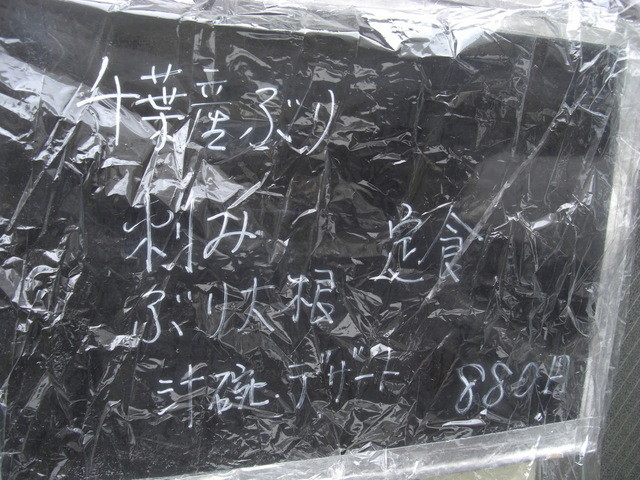 千葉産ぶり
刺み 定食
ぶり大根
ミニ碗.デザート 880円